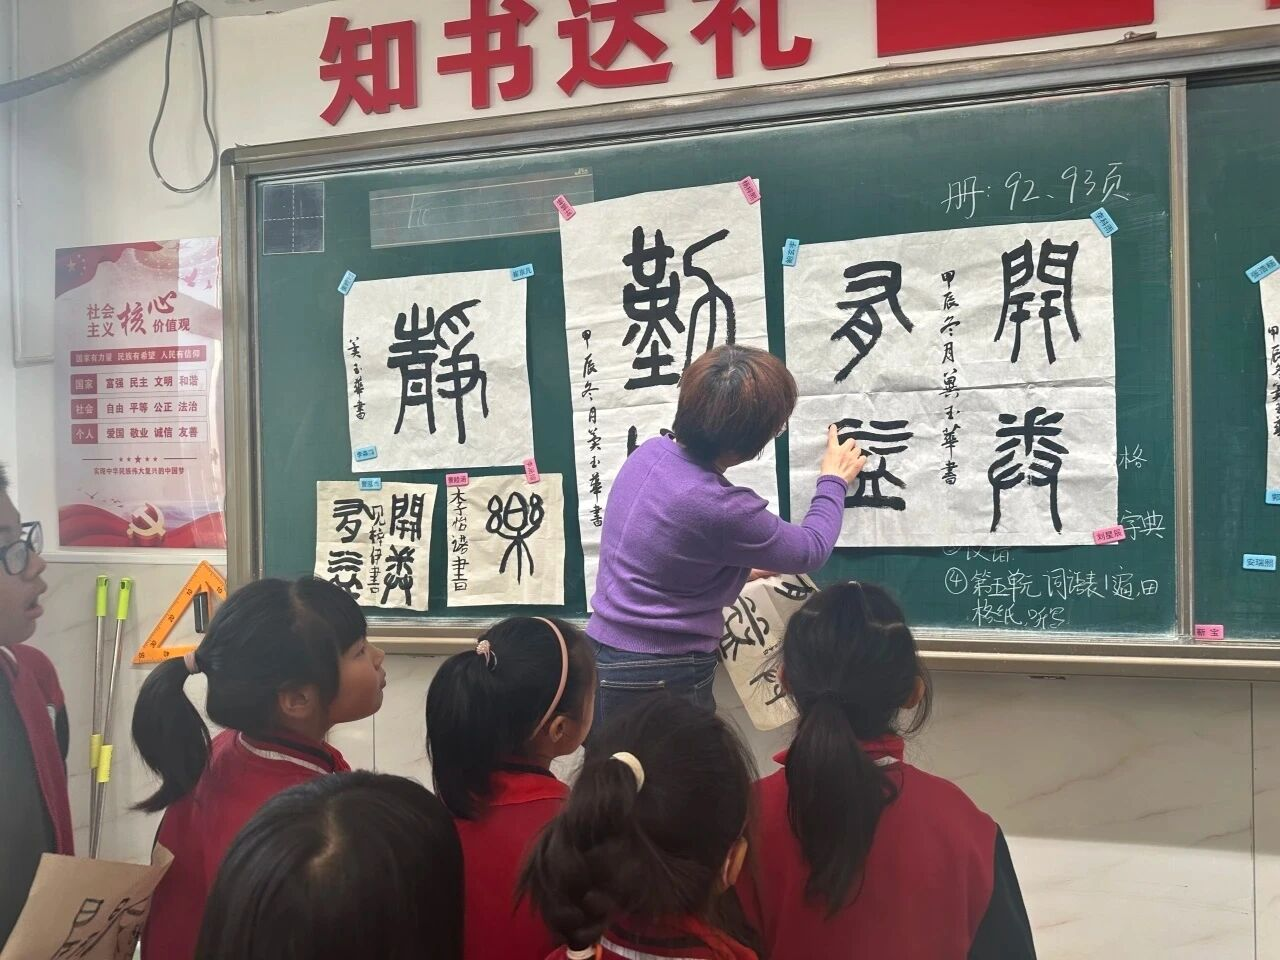 知书达礼
册：92、93页
社会
主义
核心
价值观
国家有力量 民族有希望 人民有信仰
国家 富强 民主 文明 和谐
社会 自由 平等 公正 法治
个人 爱国 敬业 诚信 友善
实现中华民族伟大复兴的中国梦
靜
玉華書
勤
甲辰冬月
玉華書
開卷
有益
甲辰冬月
玉華書
開卷
有益
樂
李子怡
書
刘星辰
安瑞熙
靳宝
格
字典
④第五单元词语表1遍,田
格纸,听写